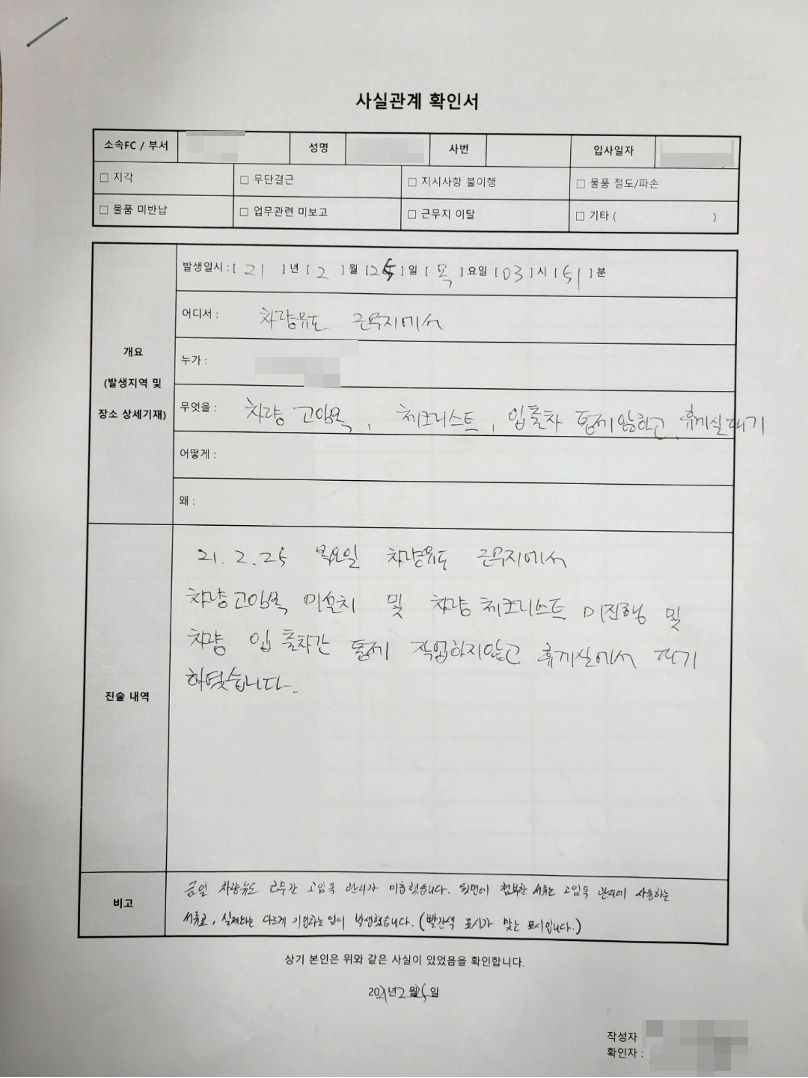 사실관계 확인서
소속FC / 부서 성명 사번 입사일자
□ 지각 □ 무단결근 □ 지시사항 불이행 □ 물품 절도/파손
□ 물품 미반납 □ 업무관련 미보고 □ 근무지 이탈 □ 기타 ( )
개요
(발생지역 및
장소 상세기재)
발생일시 : [ 21 ] 년 [ 2 ] 월 [25] 일 [ 목 ] 요일 [03] 시 [51] 분
어디서 : 차량유도 근무지에서
누가 :
무엇을 : 차량 고임목, 체크리스트, 입출차 통제않하고, 휴게실대기
어떻게 :
왜 :
진술 내역
21. 2. 25 목요일 차량유도 근무지에서
차량고임목 미설치 및 차량 체크리스트 미진행 및
차량 입 출차간 통제 작업하지않고 휴게실에서 대기
하였습니다.
비고
금일 차량유도 근무간 고임목 관리가 미흡했습니다. 뒷면에 첨부한 서류는 고임목 관리에 사용하는
서류로, 실제와는 다르게 기입하는 일이 발생했습니다. (빨간색 표시가 맞는 표시입니다.)
상기 본인은 위와 같은 사실이 있었음을 확인합니다.
2021년 2월 25일
작성자
확인자 :